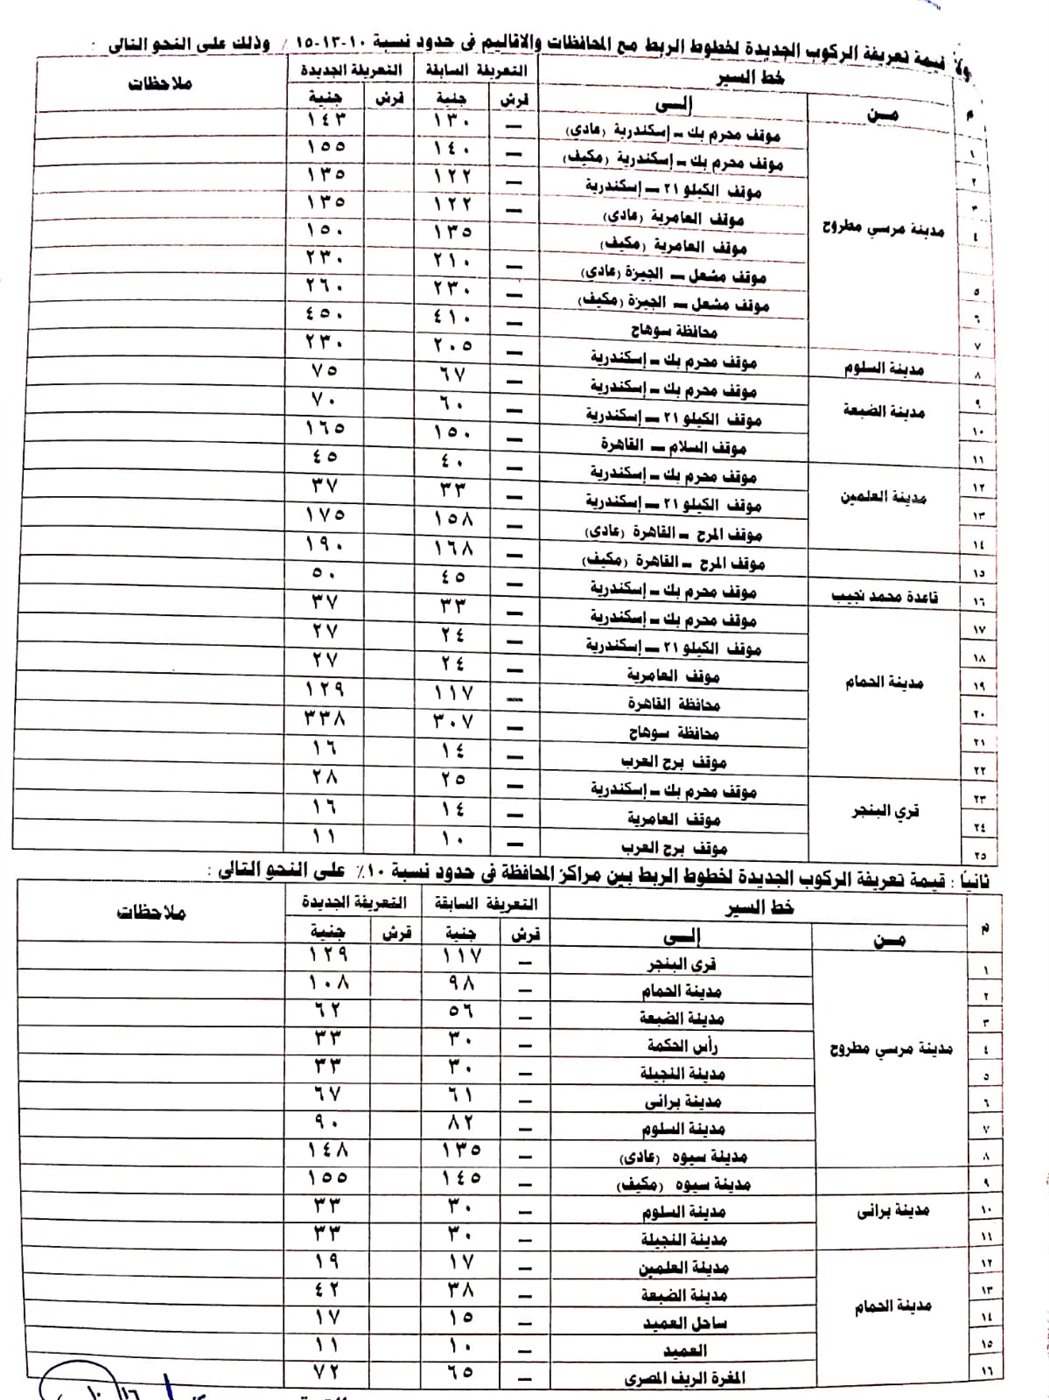 ولا: قيمة تعريفة الركوب الجديدة لخطوط الربط مع المحافظات والاقاليم فى حدود نسبة ١٠-١٣-١٥ ٪ وذلك على النحو التالى :
م خط السير التعريفة السابقة التعريفة الجديدة ملاحظات
مـن إلـى قرش جنية قرش جنية
١ مدينة مرسي مطروح موقف محرم بك – إسكندرية (عادى) – ١٣٠ ١٤٣
٢ موقف محرم بك – إسكندرية (مكيف) – ١٤٠ ١٥٥
٣ موقف الكيلو ٢١ – إسكندرية – ١٢٢ ١٣٥
٤ موقف العامرية (عادى) – ١٢٢ ١٣٥
موقف العامرية (مكيف) ١٣٥ ١٥٠
٥ موقف مشعل – الجيزة (عادى) – ٢١٠ ٢٣٠
٦ موقف مشعل – الجيزة (مكيف) – ٢٣٠ ٢٦٠
٧ محافظة سوهاج – ٤١٠ ٤٥٠
٨ مدينة السلوم موقف محرم بك – إسكندرية – ٢٠٥ ٢٣٠
٩ مدينة الضبعة موقف محرم بك – إسكندرية – ٦٧ ٧٥
١٠ موقف الكيلو ٢١ – إسكندرية – ٦٠ ٧٠
١١ موقف السلام – القاهرة – ١٥٠ ١٦٥
١٢ مدينة العلمين موقف محرم بك – إسكندرية – ٤٠ ٤٥
١٣ موقف الكيلو ٢١ – إسكندرية – ٣٣ ٣٧
١٤ موقف المرج – القاهرة (عادى) – ١٥٨ ١٧٥
١٥ موقف المرج – القاهرة (مكيف) – ١٦٨ ١٩٠
١٦ قاعدة محمد نجيب موقف محرم بك – إسكندرية – ٤٥ ٥٠
١٧ مدينة الحمام موقف محرم بك – إسكندرية – ٣٣ ٣٧
١٨ موقف الكيلو ٢١ – إسكندرية – ٢٤ ٢٧
١٩ موقف العامرية – ٢٤ ٢٧
٢٠ محافظة القاهرة – ١١٧ ١٢٩
٢١ محافظة سوهاج – ٣٠٧ ٣٣٨
٢٢ موقف برج العرب – ١٤ ١٦
٢٣ قري البنجر موقف محرم بك – إسكندرية – ٢٥ ٢٨
٢٤ موقف العامرية – ١٤ ١٦
٢٥ موقف برج العرب – ١٠ ١١
ثانيًا : قيمة تعريفة الركوب الجديدة لخطوط الربط بين مراكز المحافظة فى حدود نسبة ١٠٪ على النحو التالى :
م خط السير التعريفة السابقة التعريفة الجديدة ملاحظات
مـن إلـى قرش جنية قرش جنية
١ مدينة مرسي مطروح قرى البنجر – ١١٧ ١٢٩
٢ مدينة الحمام – ٩٨ ١٠٨
٣ مدينة الضبعة – ٥٦ ٦٢
٤ رأس الحكمة – ٣٠ ٣٣
٥ مدينة النجيلة – ٣٠ ٣٣
٦ مدينة برانى – ٦١ ٦٧
٧ مدينة السلوم – ٨٢ ٩٠
٨ مدينة سيوه (عادى) – ١٣٥ ١٤٨
٩ مدينة سيوه (مكيف) – ١٤٥ ١٥٥
١٠ مدينة برانى مدينة السلوم – ٣٠ ٣٣
١١ مدينة النجيلة – ٣٠ ٣٣
١٢ مدينة الحمام مدينة العلمين – ١٧ ١٩
١٣ مدينة الضبعة – ٣٨ ٤٢
١٤ ساحل العميد – ١٥ ١٧
١٥ العميد – ١٠ ١١
١٦ المغرة الريف المصرى – ٦٥ ٧٢